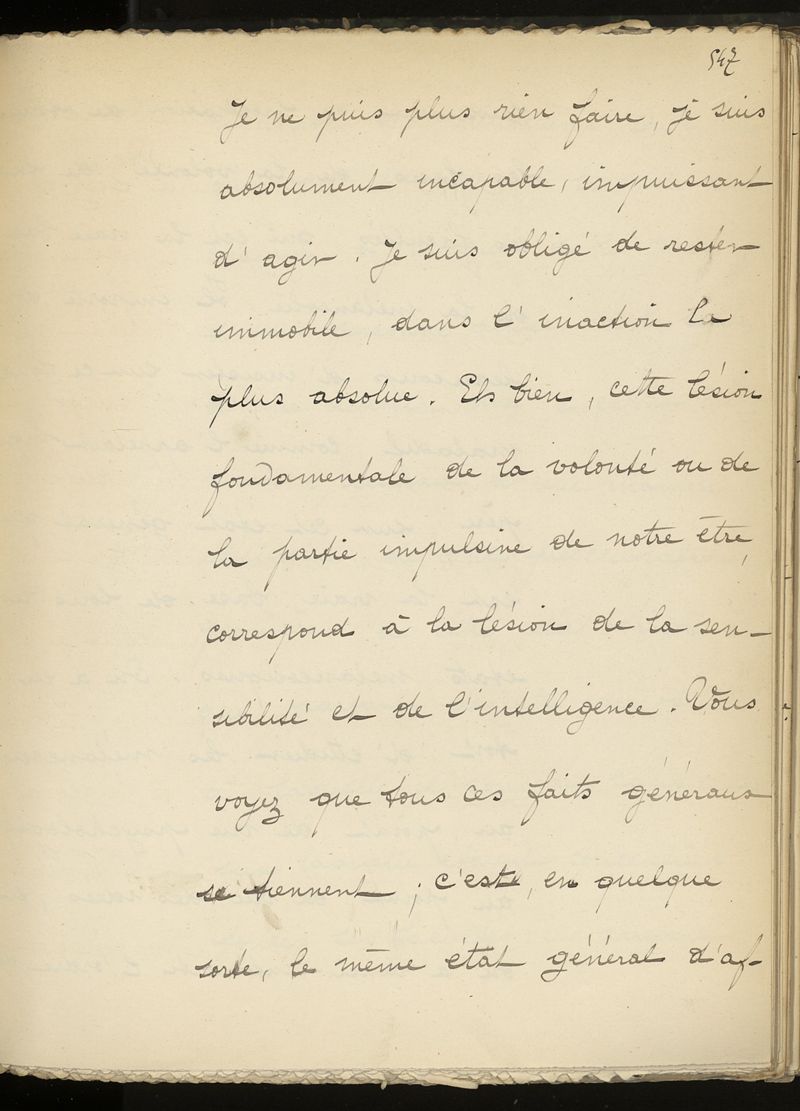 547
Je ne puis plus rien faire, je suis
absolument incapable, impuissant
d'agir. Je suis obligé de rester
immobile, dans l'inaction la
plus absolue. Eh bien, cette lésion
fondamentale de la volonté ou de
la partie impulsive de notre être,
correspond à la lésion de la sen-
sibilité et de l'intelligence. Vous
voyez que tous ces faits généraux
se tiennent ; c'est, en quelque
sorte, le même état général d'af-